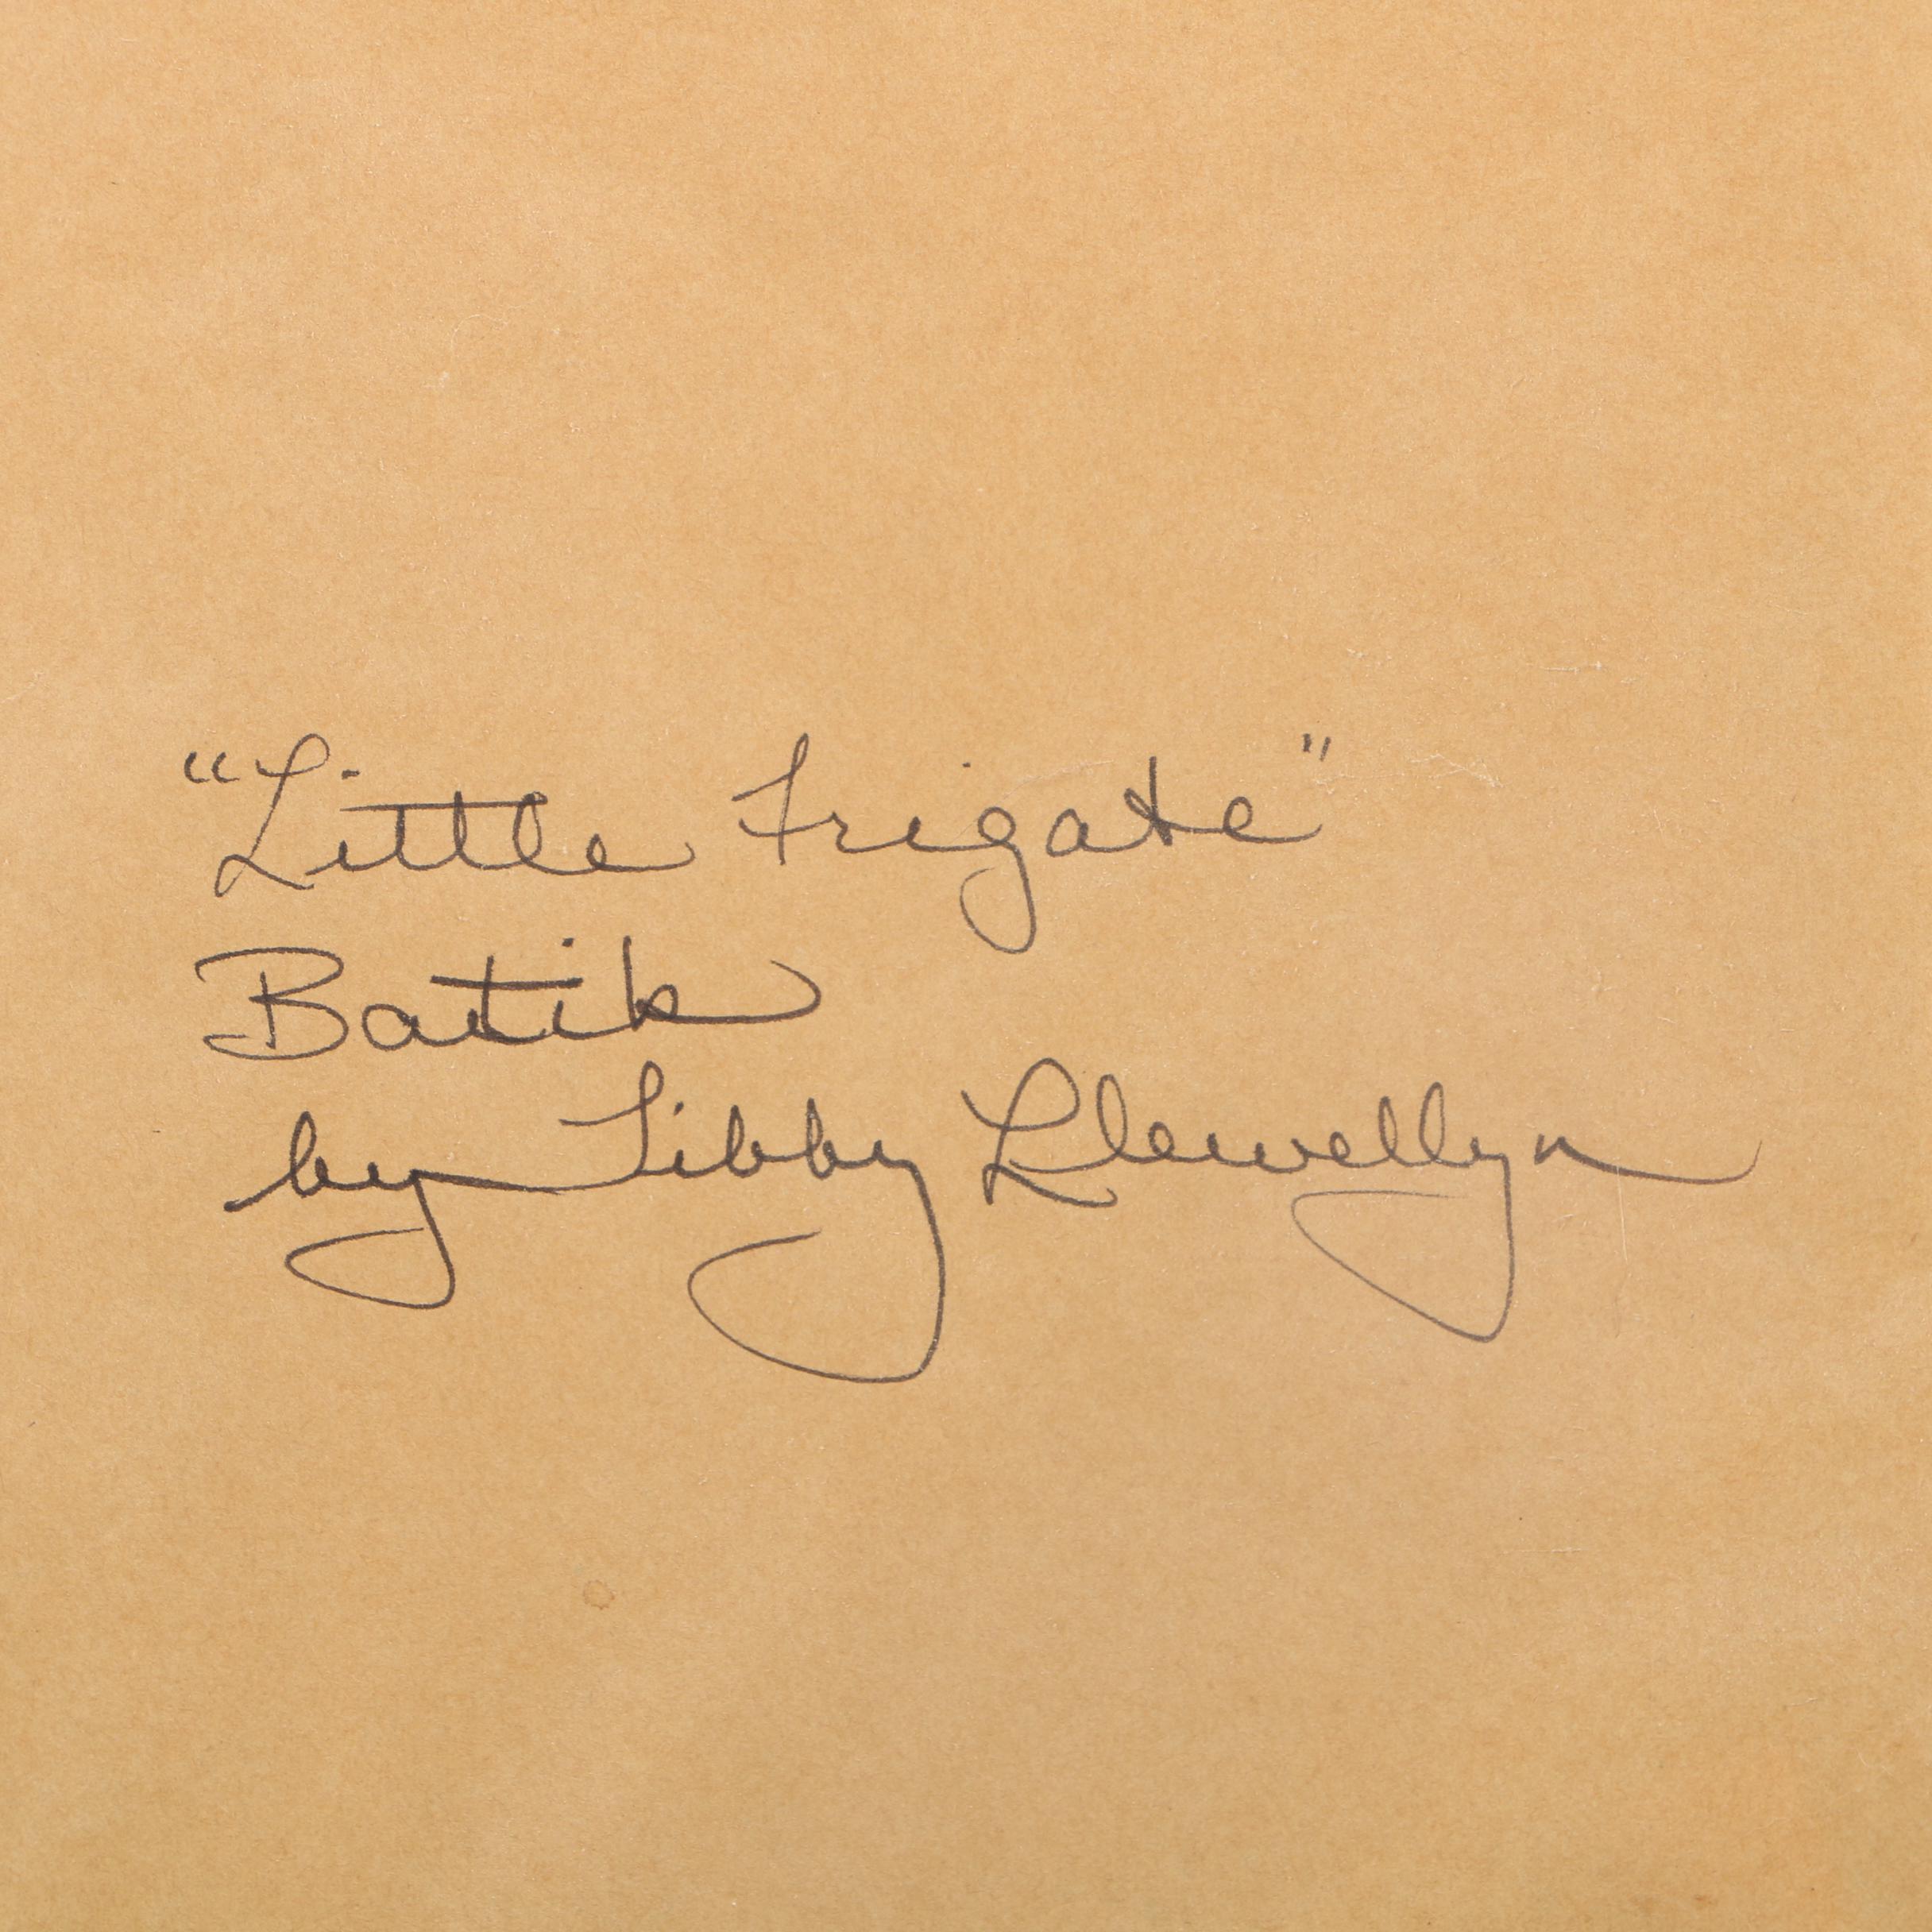 "Little Frigate"
Batik
by Libby Llewellyn